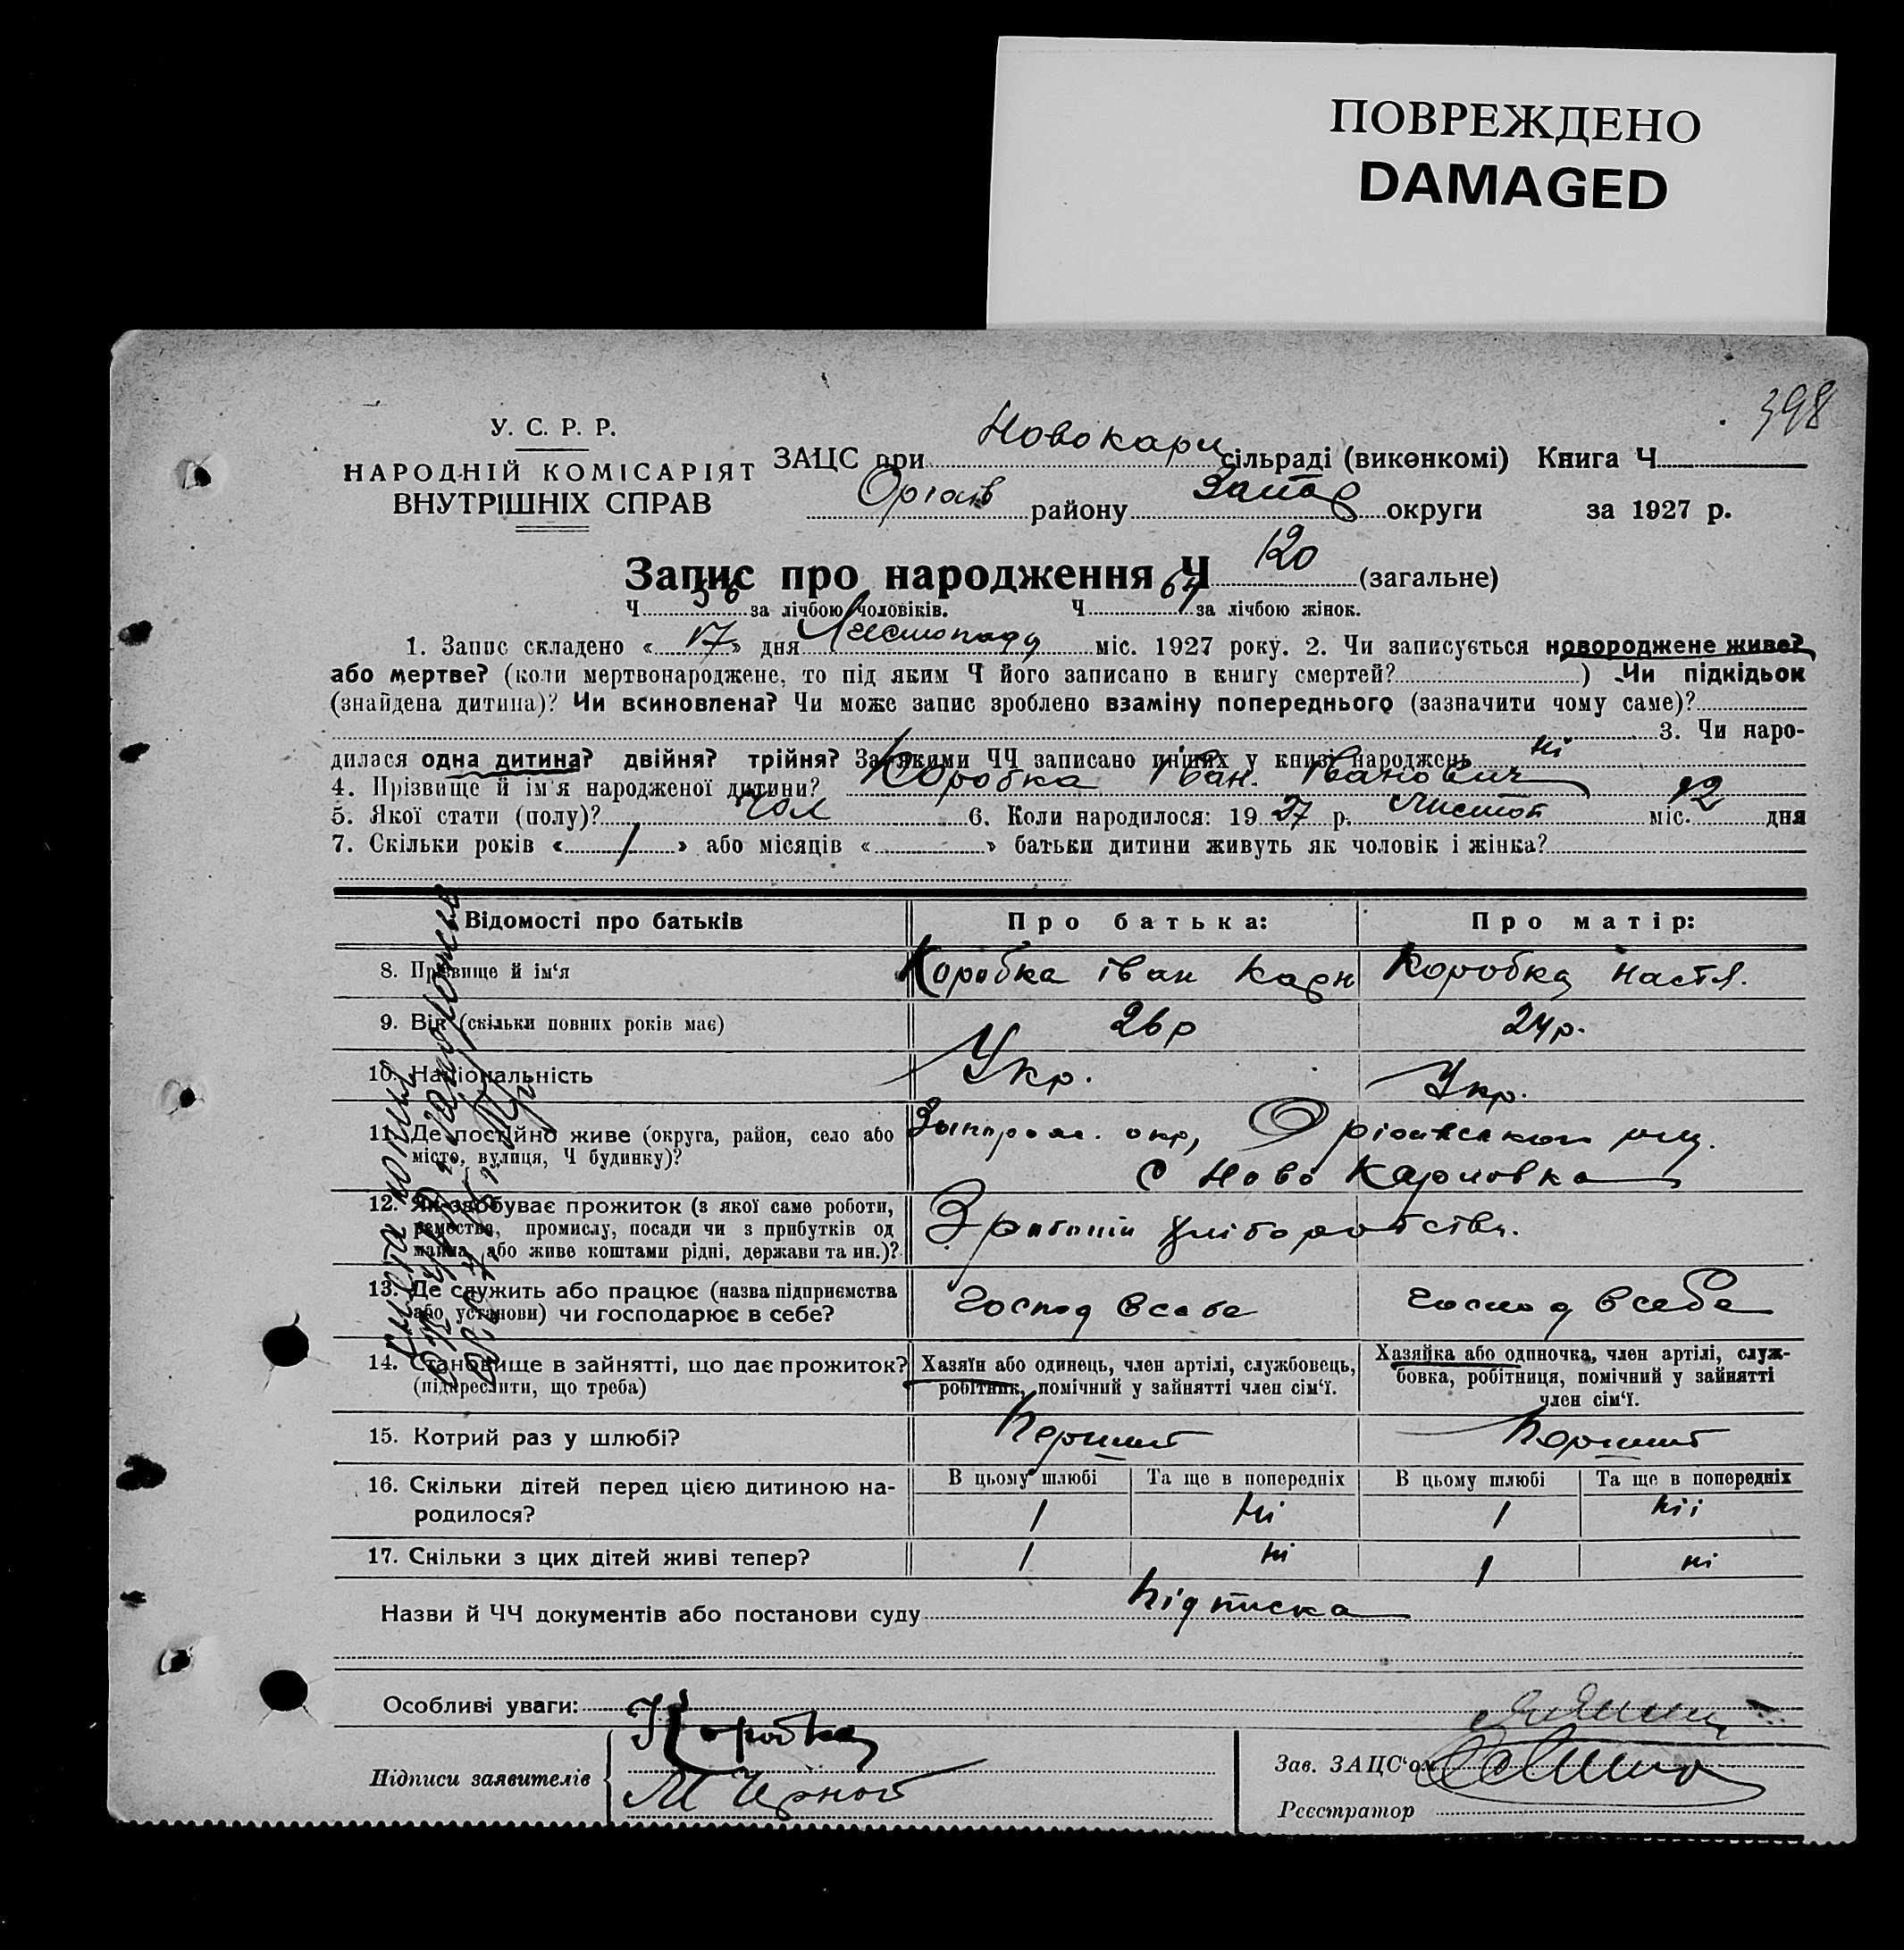 ПОВРЕЖДЕНО
DAMAGED
398
У. С. Р. Р.
НАРОДНІЙ КОМІСАРІЯТ
ВНУТРІШНІХ СПРАВ
ЗАЦС при Новокарц сільраді (виконкомі) Книга Ч
району Запор округи за 1927 р.
Запис про народження Ч 120 (загальне)
Ч 56 за лічбою чоловіків. Ч 64 за лічбою жінок.
1. Запис складено « 17 » дня Листопаду міс. 1927 року. 2. Чи записується новороджене живе?
або мертве? (коли мертвонароджене, то під яким Ч його записано в книгу смертей? ) Чи підкідьок
(знайдена дитина)? Чи всиновлена? Чи може запис зроблено взаміну попереднього (зазначити чому саме)?
3. Чи наро-
дилася одна дитина? двійня? трійня? За якими ЧЧ записано инших у книзі народжень ні
4. Прізвище й ім'я народженої дитини? Коробка Іван Іванович
5. Якої стати (полу)? Чол 6. Коли народилося: 19 27 р. Листоп міс. 12 дня
7. Скільки років « / » або місяців « » батьки дитини живуть як чоловік і жінка?
Відомості про батьків Про батька: Про матір:
8. Прізвище й ім'я Коробка Іван Карн Коробка Настя.
9. Вік (скільки повних років має) 26р 24р.
10. Національність Укр. Укр.
11. Де постійно живе (округа, район, село або
місто, вулиця, Ч будинку)?
Запорож. окр,
с Ново Карловка
12. Як здобуває прожиток (з якої саме роботи,
ремества, промислу, посади чи з прибутків од
майна, або живе коштами рідні, держави та ин.)?
З хліборобства.
13. Де служить або працює (назва підприємства
або установи) чи господарює в себе?
Господ всебе Господ всебе
14. Становище в зайнятті, що дає прожиток?
(підкреслити, що треба)
Хазяїн або одинець, член артілі, службовець,
робітник, помічний у зайнятті член сім'ї.
Хазяйка або одиночка, член артілі, служ-
бовка, робітниця, помічний у зайнятті
член сім'ї.
15. Котрий раз у шлюбі? Перший Перший
16. Скільки дітей перед цією дитиною на-
родилося?
В цьому шлюбі Та ще в попередніх В цьому шлюбі Та ще в попередніх
1 ні 1 ні
17. Скільки з цих дітей живі тепер? 1 ні 1 ні
Назви й ЧЧ документів або постанови суду Підписка
Особливі уваги:
Підписи заявителів Коробка
Зав. ЗАЦС'ом
Реєстратор